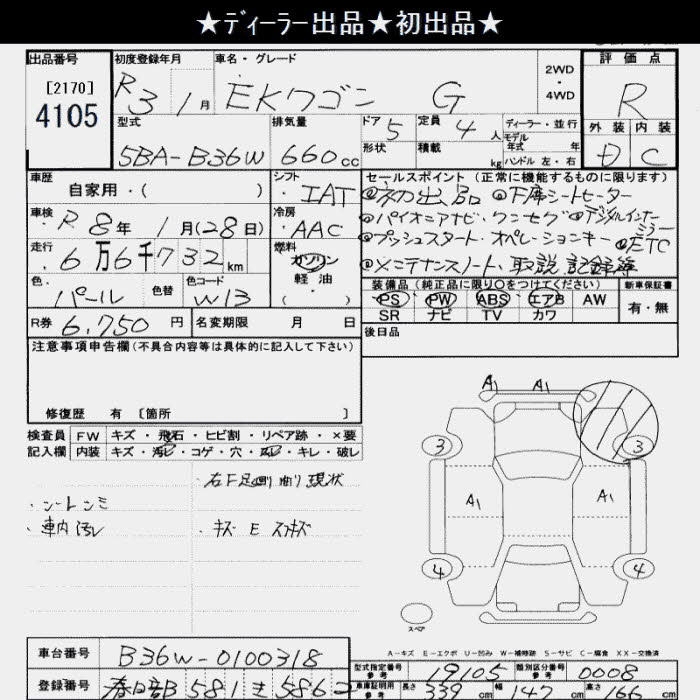 ★ディーラー出品★初出品★
出品番号 初度登録年月 車名・グレード 2WD・4WD 評価点
[2170] 4105 R3 1月 EKワゴン G R
型式 排気量 ドア 5 定員 4人 ディーラー・並行 外装 内装
5BA-B36W 660cc 形状 積載 kg モデル年式 年式 ハンドル 左・右 D C
車歴 シフト セールスポイント(正常に機能するものに限ります)
自家用・( ) IAT ◎初出品 ◎F席シートヒーター
車検 冷房 ◎パイオニアナビ・ワンセグ ◎デジタルインナーミラー
R8年 1月(28日) AAC ◎プッシュスタート・オペレーションキー ◎ETC
走行 燃料 ◎メンテナンスノート、取説、記録簿
6万6千732km ガソリン 軽油 ( )
色 色替 色コード 装備品(純正品に限り○をつけてください) 新車保証書
パール W13 PS PW ABS エアB AW 有・無
R券 6,750円 名変期限 月 日 SR ナビ TV カワ
注意事項申告欄(不具合内容等は具体的に記入して下さい) 後日品
修復歴 有 [箇所 ]
検査員 FW キズ・飛石・ヒビ割・リペア跡・×要
記入欄 内装 キズ・汚レ・コゲ・穴・スレ・キレ・破レ
・右F足廻り曲り 現状
・シートシミ
・車内汚レ ・キズ E スリキズ
A1 A1
3 3
A1 A1
4 4
スペア
A-キズ E-エクボ U-凹み W-補修跡 S-サビ C-腐食 XX-交換済
車台番号 B36W-0100318 型式指定番号 参考 19105 類別区分番号 参考 0008
登録番号 春日部 581 586 車庫証明用 参考 長さ 339cm 幅 147cm 高さ cm